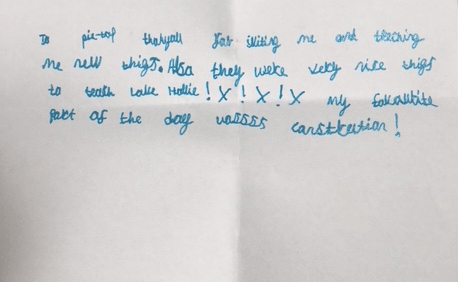 To pie-top thankyou for inviting me and teaching
me new things. Also they were very nice things
to teach love Hollie! X! X! X my favourite
part of the day wassss